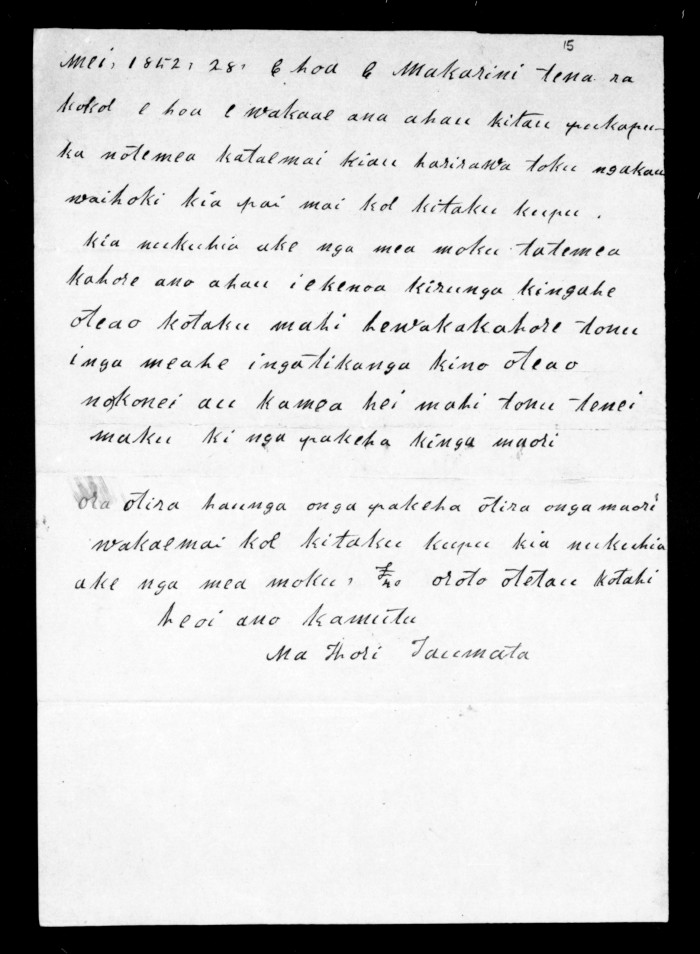 15
Mei, 1852, 28, E hoa E Makarini tena ra
kokoe e hoa e wakaae ana ahau kitau pukapu-
ka nōtemea kataemai kiau harirawa toku ngakau
waihoki kia pai mai koe kitaku kupu.
kia nukuhia ake nga mea moku tatemea
kahore ano ahau i ekenoa kirunga kingahe
ōteao kotaku mahi hewakakahore tonu
inga meahe ingatikanga kino ōteao
nokonei au kamea hei mahi tonu tenei
maku ki nga pakeha kinga maori
ora ōtira haunga onga pakeha ōtira ongamaori
wakaemai koe kitaku kupu kia nukuhia
ake nga mea moku, oroto ōtetau kotahi
heoi ano kamutu
Na Hori Taumata